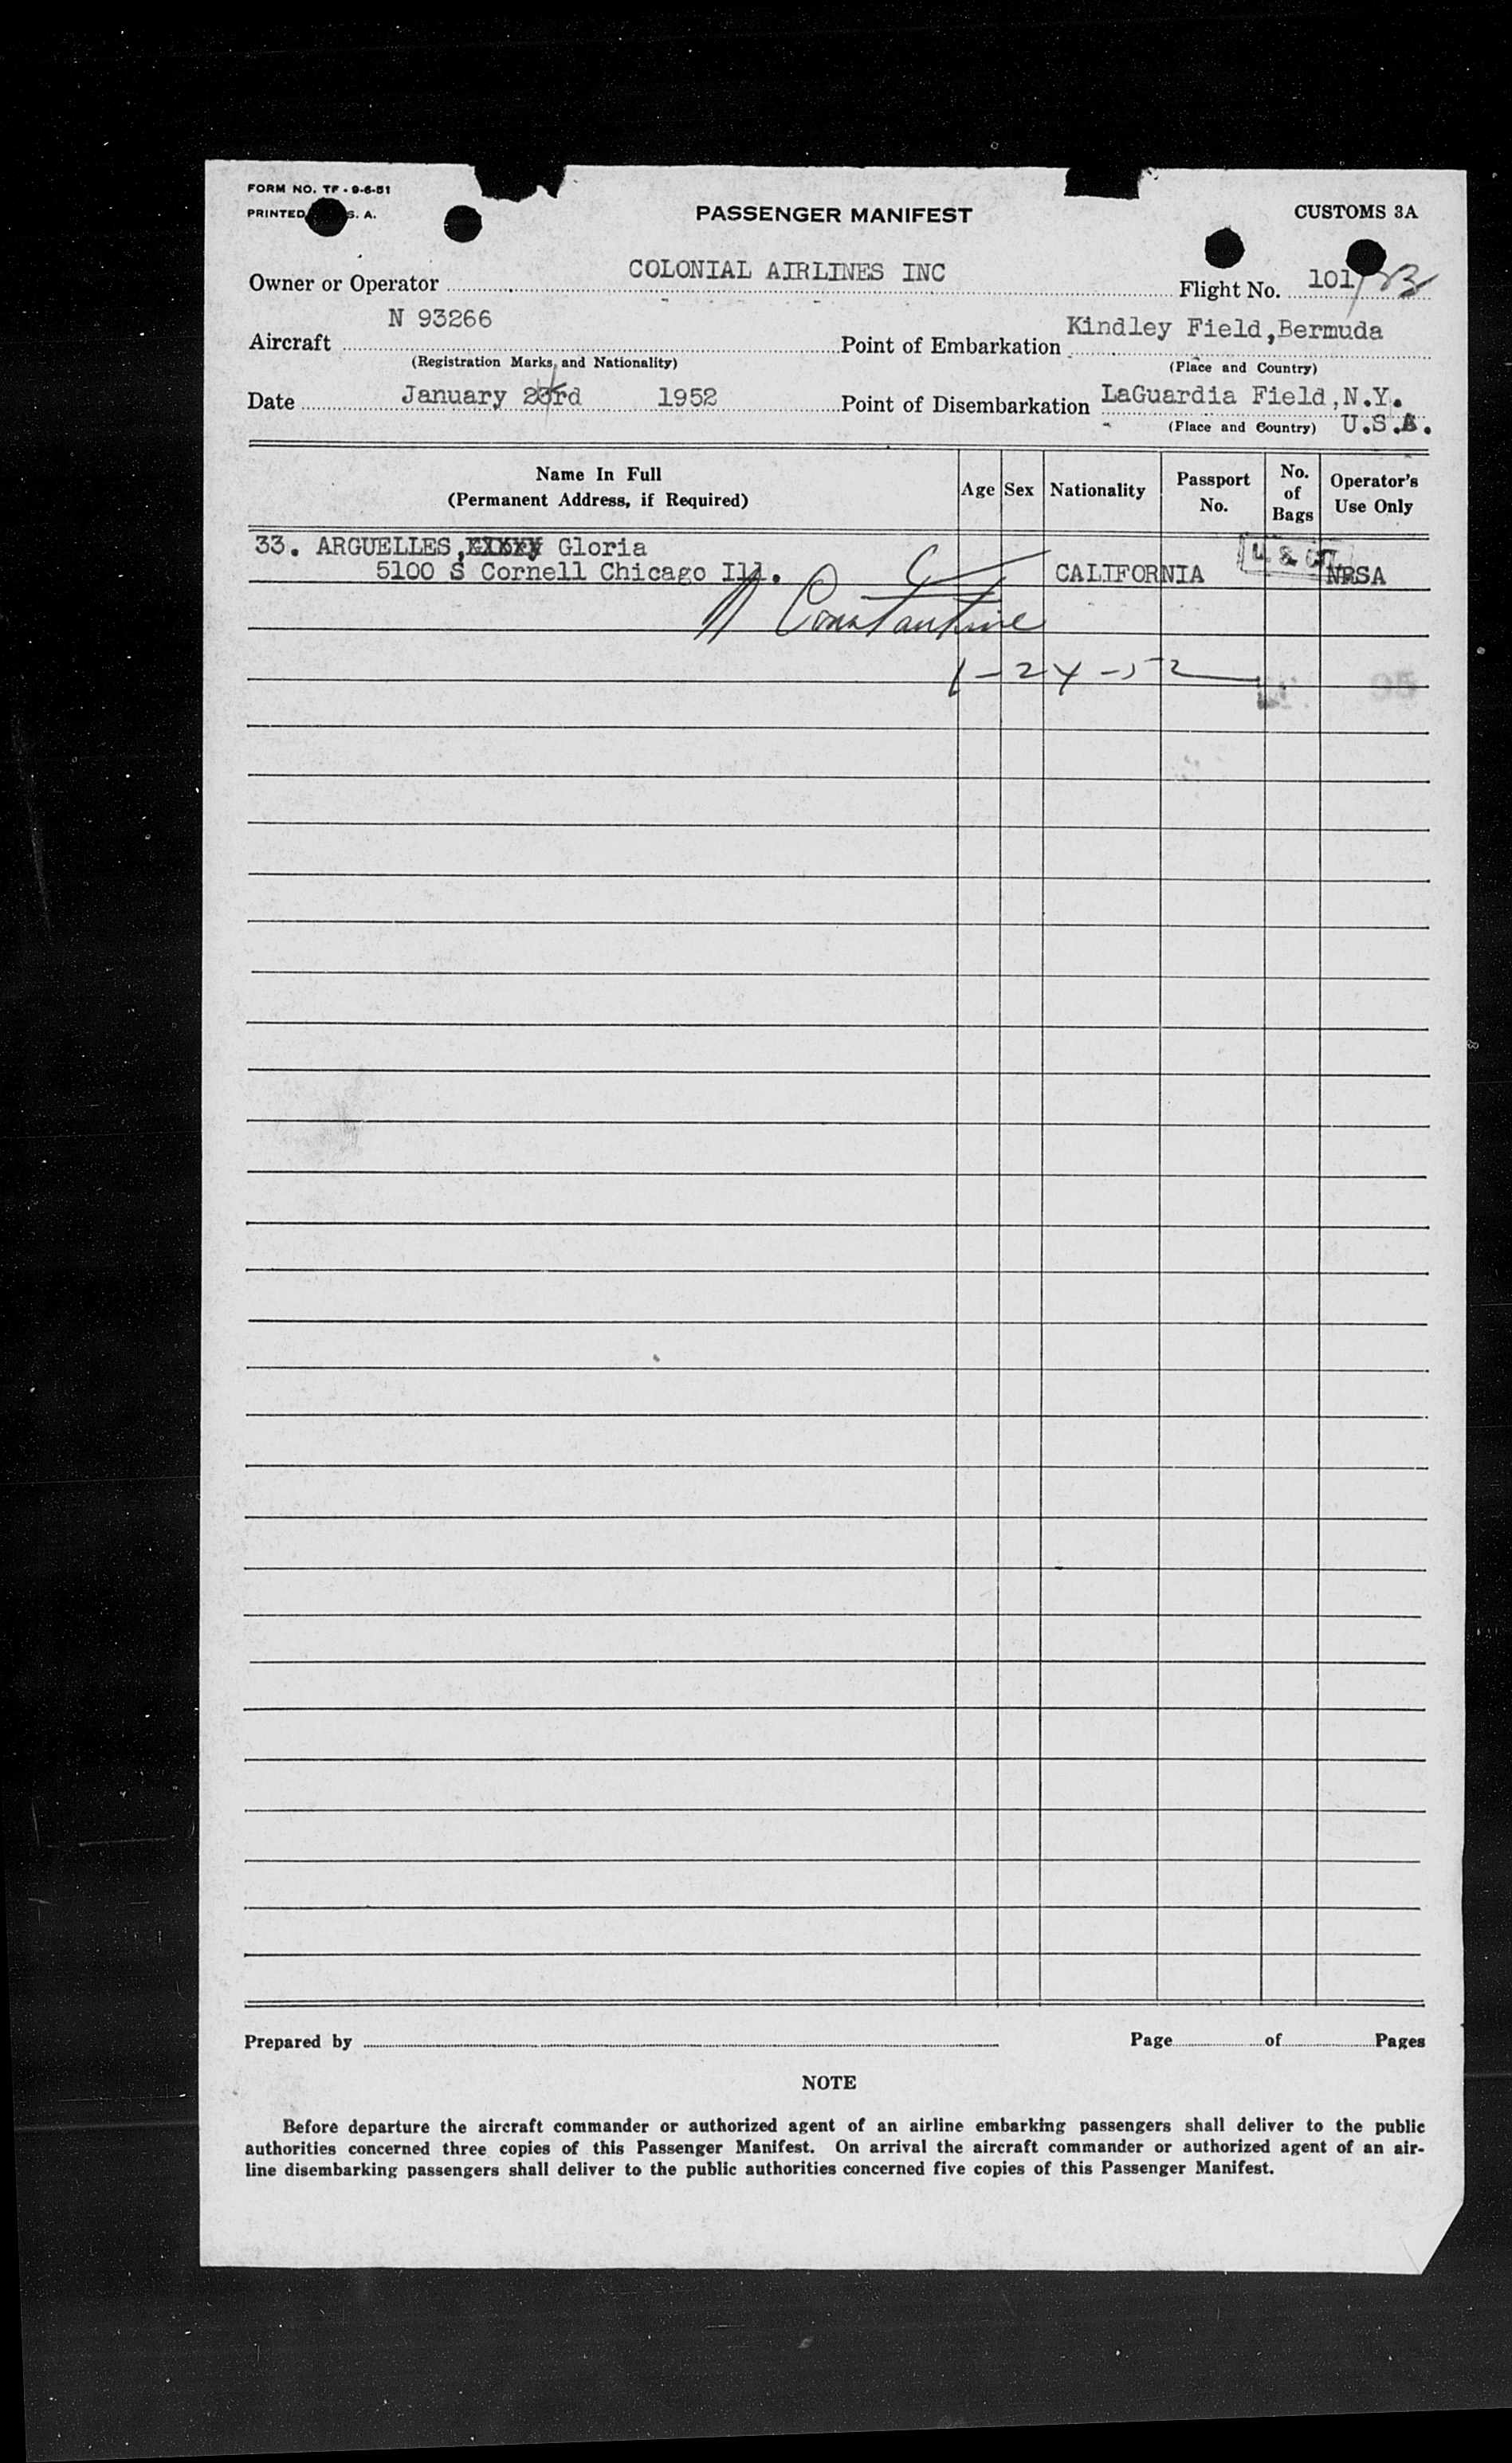 FORM NO. TF - 9-6-51
PRINTED S. A.
PASSENGER MANIFEST
CUSTOMS 3A
Owner or Operator COLONIAL AIRLINES INC
Flight No. 101
Aircraft N 93266
(Registration Marks, and Nationality)
Point of Embarkation Kindley Field,Bermuda
(Place and Country)
Date January 23rd 1952
Point of Disembarkation LaGuardia Field,N.Y.
(Place and Country) U.S.A.
Name In Full
(Permanent Address, if Required)
Age
Sex
Nationality
Passport
No.
No.
of
Bags
Operator's
Use Only
33. ARGUELLES, Gloria
5100 S Cornell Chicago Ill.
CALIFORNIA
NRSA
Constantine
1-24-52
Prepared by
Page of Pages
NOTE
Before departure the aircraft commander or authorized agent of an airline embarking passengers shall deliver to the public
authorities concerned three copies of this Passenger Manifest. On arrival the aircraft commander or authorized agent of an air-
line disembarking passengers shall deliver to the public authorities concerned five copies of this Passenger Manifest.